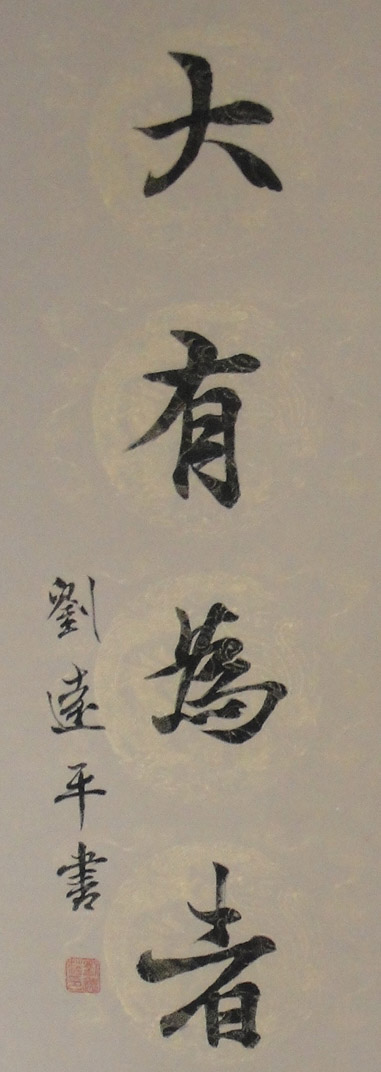 大有為者
劉遠平書